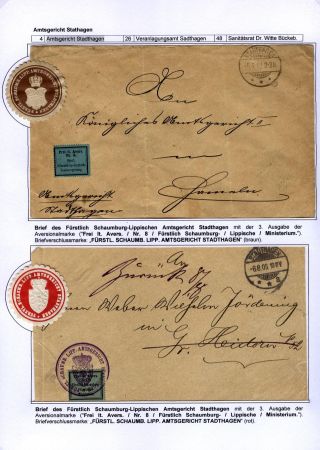 Amtsgericht Stathagen
4 Amtsgericht Stadthagen 26 Veranlagungsamt Sadthagen 48 Sanitätsrat Dr. Witte Bückeb.
An
Königliches Amtsgericht
in
Hameln
Frei lt. Avers.
Nr. 8
Amtsgericht
Stadthagen
Brief des Fürstlich Schaumburg-Lippischen Amtsgericht Stadthagen mit der 3. Ausgabe der
Aversionalmarke ("Frei lt. Avers. / Nr. 8 / Fürstlich Schaumburg- / Lippische / Ministerium.").
Briefverschlussmarke: „FÜRSTL. SCHAUMB. LIPP. AMTSGERICHT STADTHAGEN" (braun).
An
Zurück
den Weber Wilhelm Jördening
in
Brief des Fürstlich Schaumburg-Lippischen Amtsgericht Stadthagen mit der 3. Ausgabe der
Aversionalmarke ("Frei lt. Avers. / Nr. 8 / Fürstlich Schaumburg- / Lippische / Ministerium.").
Briefverschlussmarke: „FÜRSTL. SCHAUMB. LIPP. AMTSGERICHT STADTHAGEN" (rot).